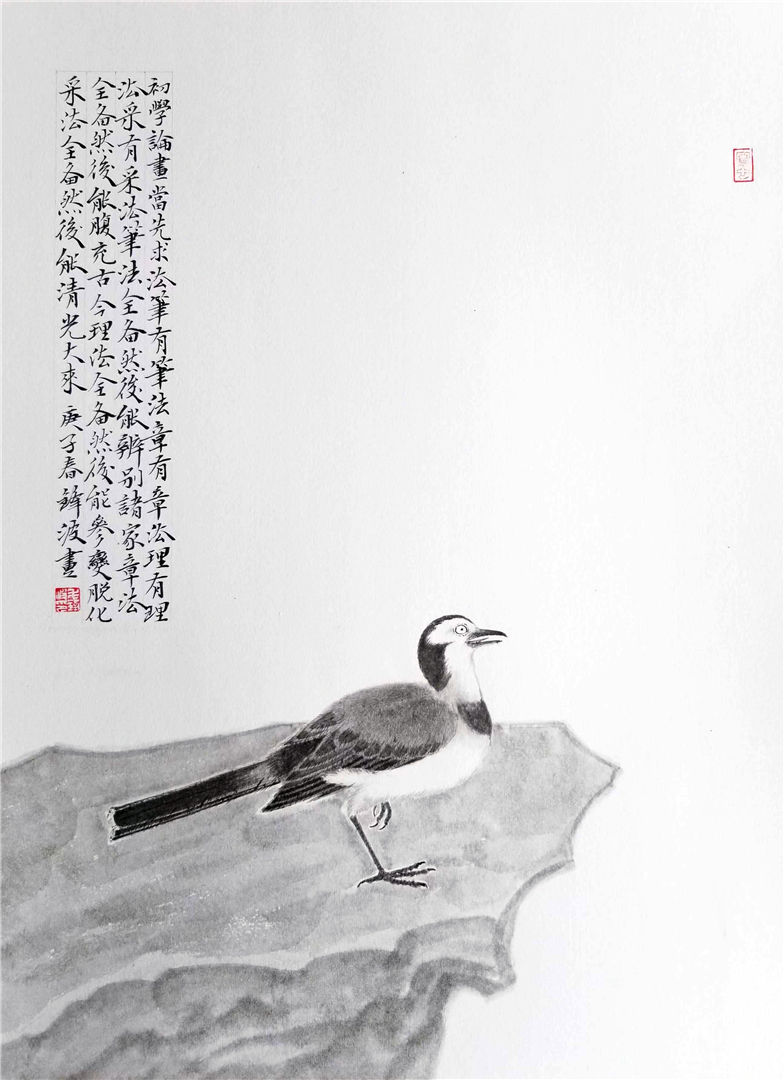 初學論畫當先求法筆有筆法章有章法理有理
法采有采法筆法全备然後能辨别諸家章法
全备然後能腹充古今理法全备然後能參變脱化
采法全备然後能清光大來 庚子春鋒波畫